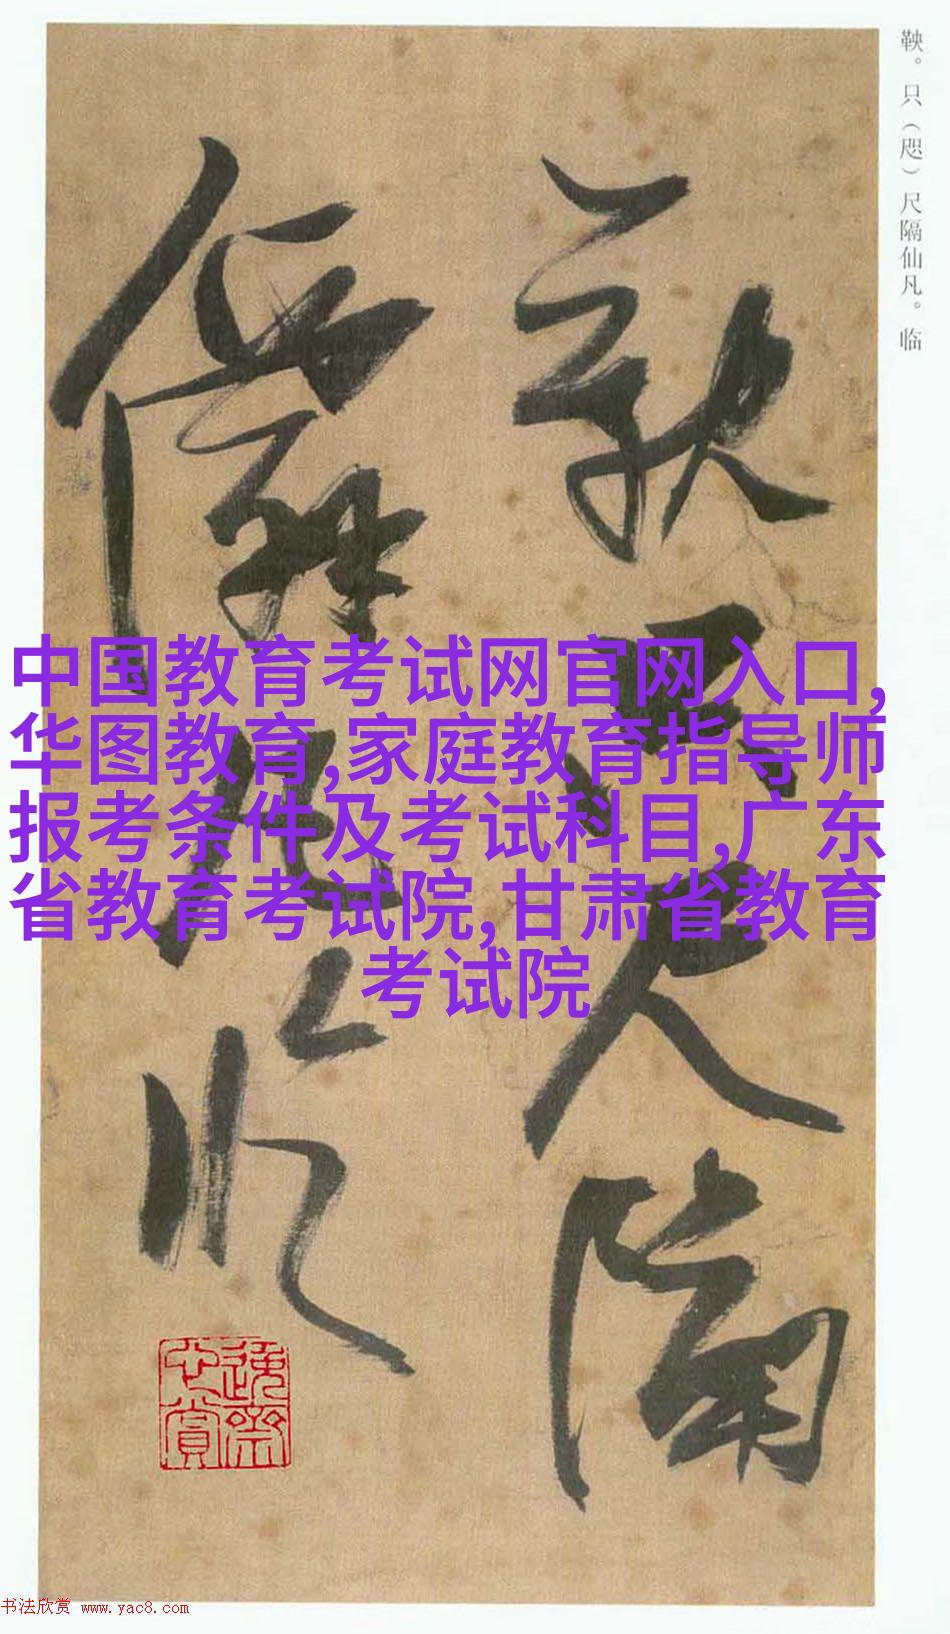 鞅。只（咫）尺隔仙凡。临
鞅只尺隔
仙凡临
中国教育考试网官网入口,
华图教育,家庭教育指导师
报考条件及考试科目,广东
省教育考试院,甘肃省教育
考试院
书法欣赏 www.yac8.com